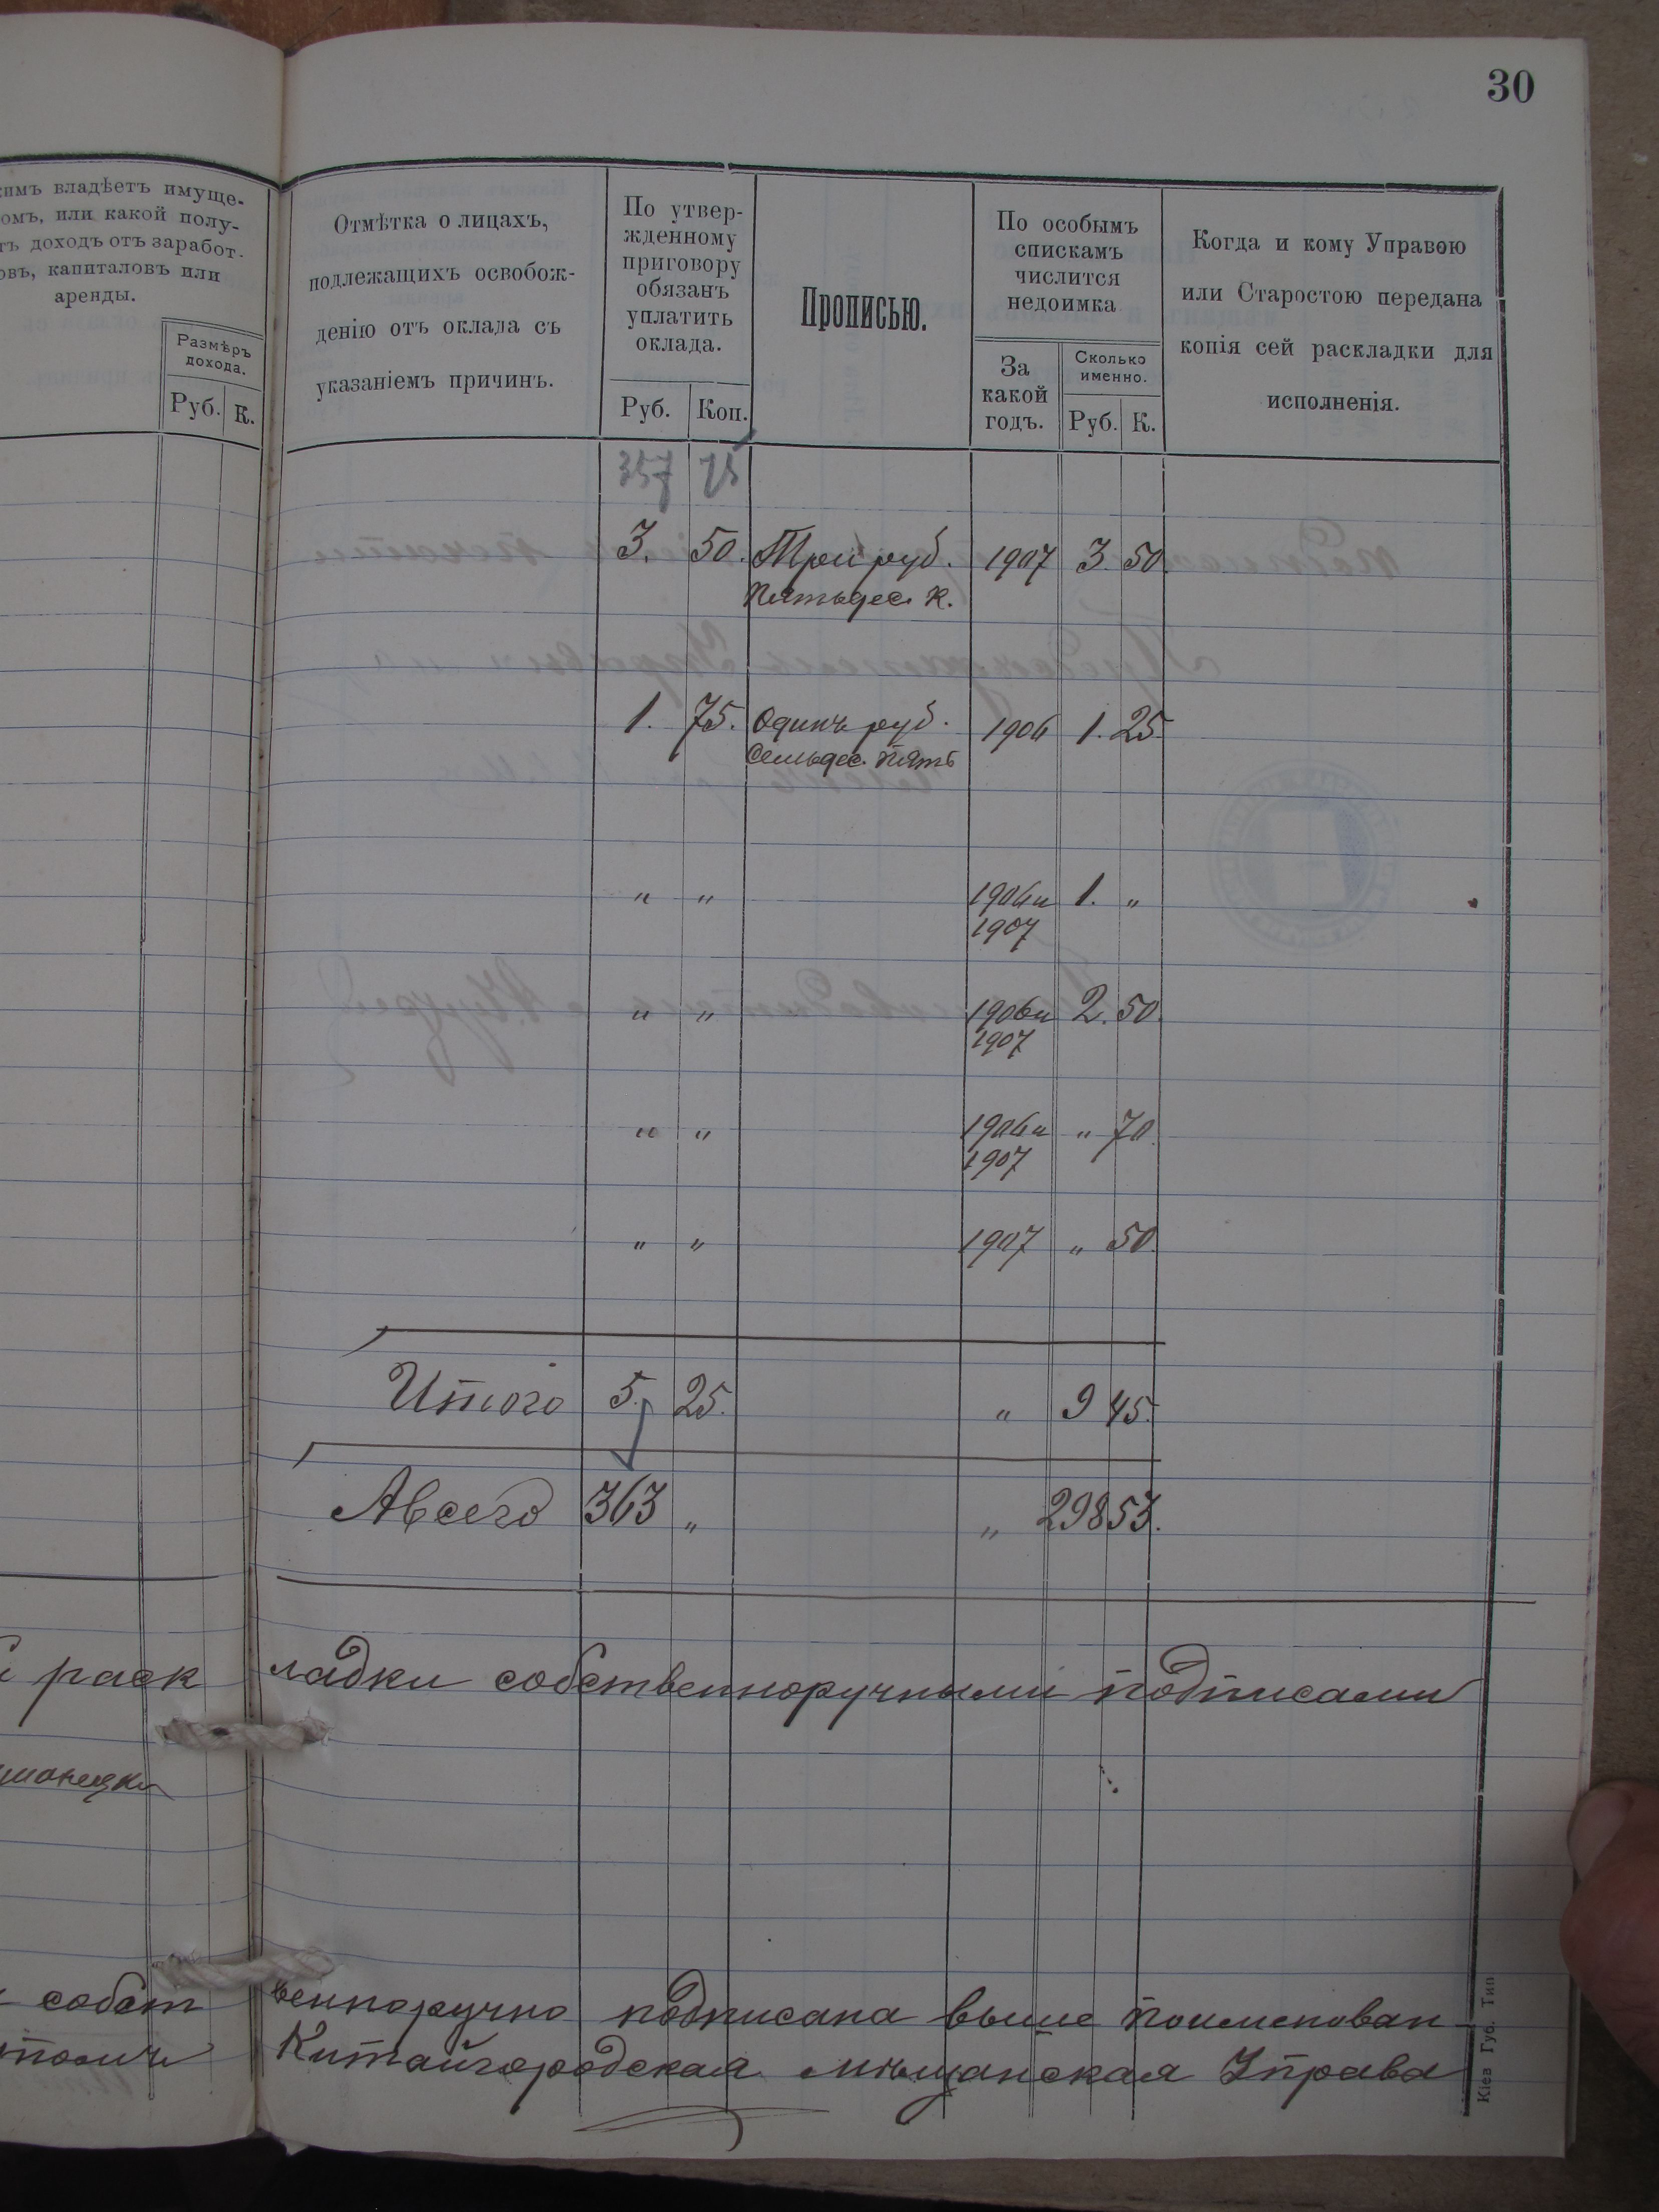 30
кимъ владѣетъ имуще-
омъ, или какой полу-
тъ доходъ отъ заработ-
овъ, капиталовъ или
аренды.
Размѣръ дохода.
Руб. К.
Отмѣтка о лицахъ,
подлежащихъ освобож-
денію отъ оклада съ
указаніемъ причинъ.
По утвер-
жденному
приговору
обязанъ
уплатить
оклада.
Руб. Коп.
Прописью.
По особымъ
спискамъ
числится
недоимка
За
какой
годъ.
Сколько
именно.
Руб. К.
Когда и кому Управою
или Старостою передана
копія сей раскладки для
исполненія.
357 75
3. 50. Три руб. 1907 3. 50.
Пятьдес. К.
1. 75. Одинъ руб. 1906 1. 25
Семьдес. пять
" " 1906 и 1. "
1907
" " 1906 и 2. 50.
1907
" " 1906 и " 70.
1907
" " 1907 " 50.
Итого 5. 25. " 9 45.
А всего 363 " " 298 53.
раск ладки собственноручными подписами
собст венноручно подписана выше поименован
Китайгородская мѣщанская Управа
Кіев Губ. Тип